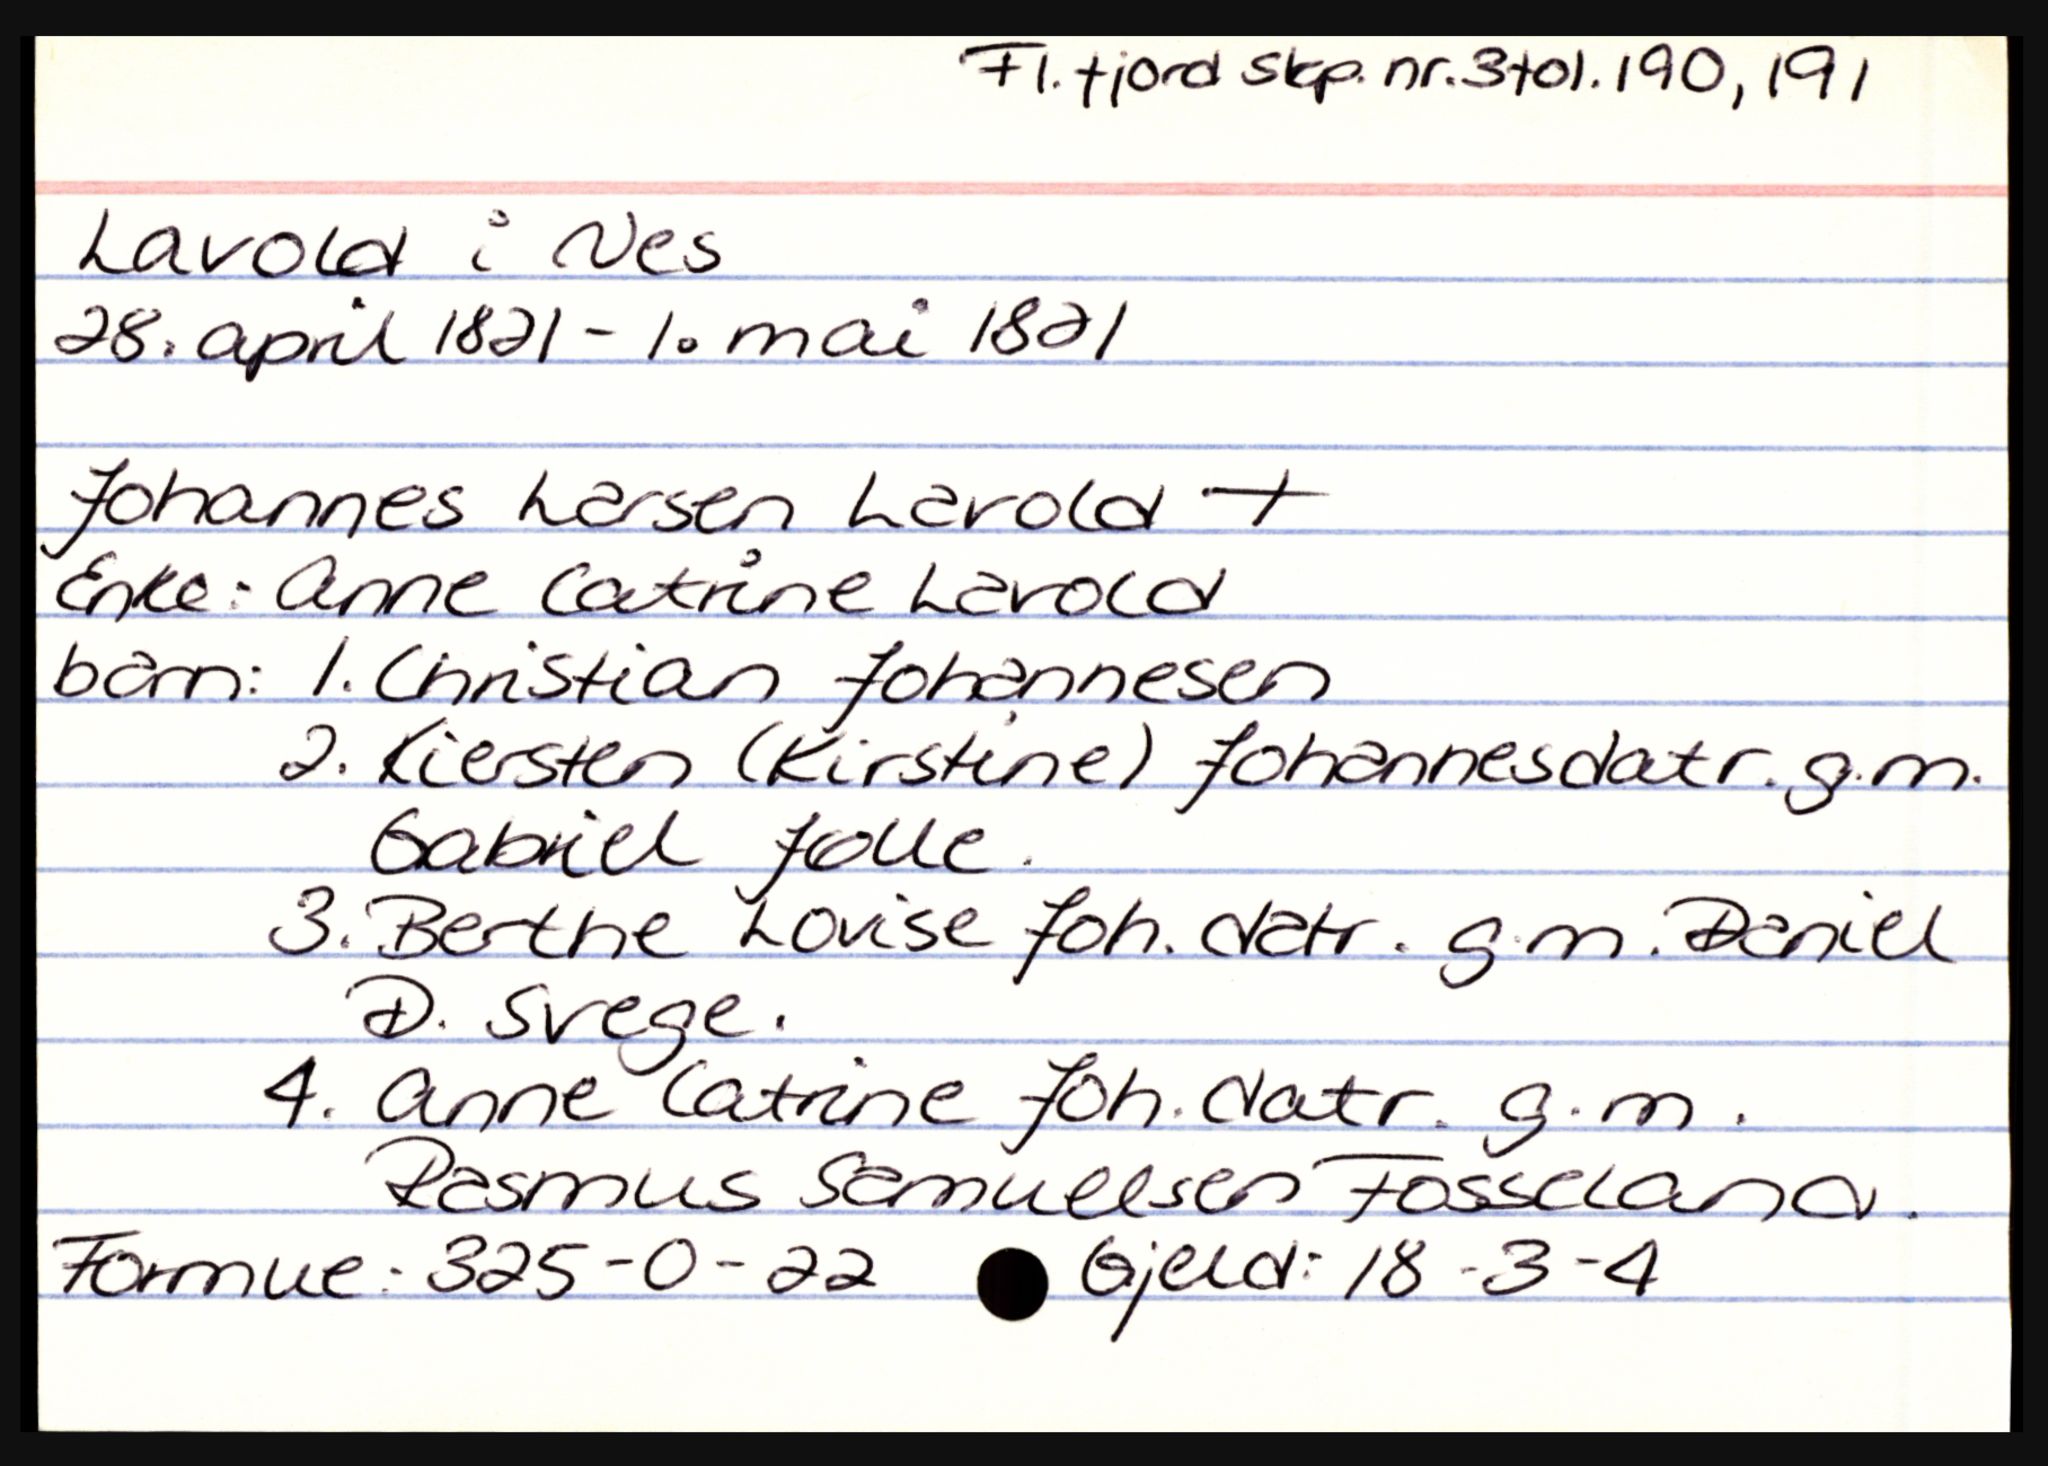 Fl.fjord skp. nr. 3 fol. 190, 191
Lavold i Nes
28. april 1821 - 1. mai 1821
Johannes Larsen Lavold +
Enke: Anne Catrine Lavold
barn: 1. Christian Johannesen
2. Kiersten (Kirstine) Johannesdatr. g.m.
Gabriel Jolle.
3. Berthe Lovise Joh.datr. g.m. Daniel
D. Svege.
4. Anne Catrine Joh.datr. g.m.
Rasmus Samuelsen Fosseland.
Formue: 325-0-22 Gjeld: 18-3-4